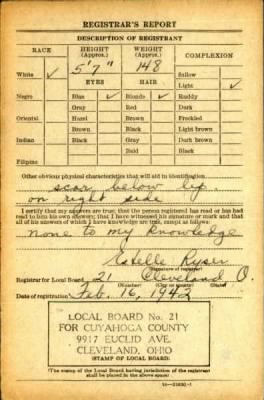 REGISTRAR'S REPORT
DESCRIPTION OF REGISTRANT
RACE HEIGHT (Approx.) WEIGHT (Approx.) COMPLEXION
5'7" 148
White ✓ Sallow
EYES HAIR Light ✓
Negro Blue ✓ Blonde ✓ Ruddy
Gray Red Dark
Oriental Hazel Brown Freckled
Brown Black Light brown
Indian Black Gray Dark brown
Bald Black
Filipino
Other obvious physical characteristics that will aid in identification
scar below lip
on right side
I certify that my answers are true; that the person registered has read or has had
read to him his own answers; that I have witnessed his signature or mark and that
all of his answers of which I have knowledge are true, except as follows:
none to my knowledge
Estelle Ryser
(Signature of registrar)
Registrar for Local Board 21 Cleveland O.
(Number) (City or county) (State)
Date of registration Feb. 16, 1942
LOCAL BOARD No. 21
FOR CUYAHOGA COUNTY
9917 EUCLID AVE.
CLEVELAND, OHIO
(STAMP OF LOCAL BOARD)
(The stamp of the Local Board having jurisdiction of the registrant
shall be placed in the above space)